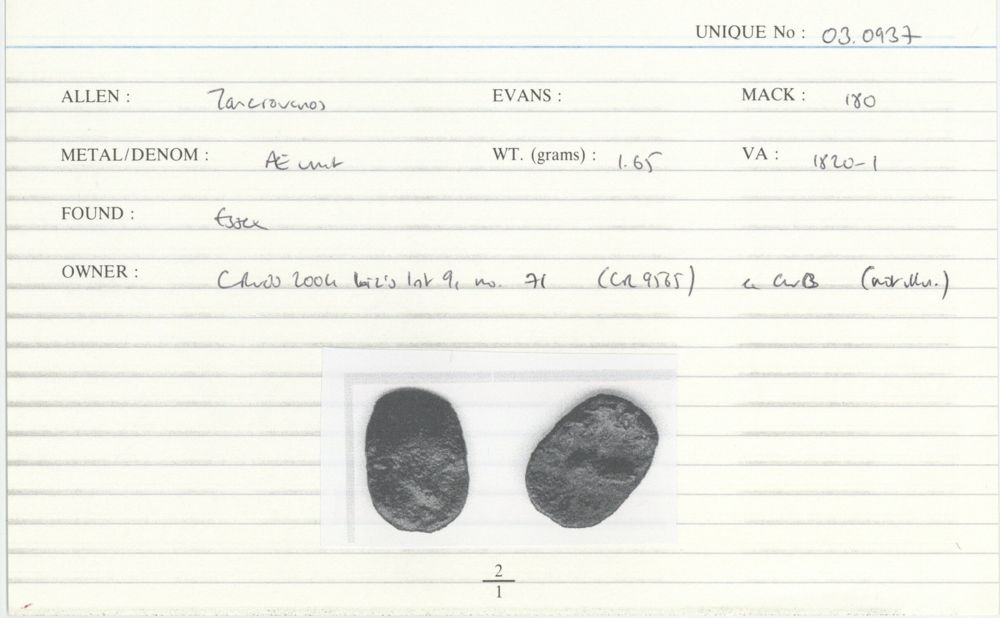 UNIQUE No : 03.0937
ALLEN : Tasciovanos EVANS : MACK : 180
METAL/DENOM : AE unit WT. (grams) : 1.65 VA : 1820-1
FOUND : Essex
OWNER : 2004 lot 9, no. 71 (CR 9565) ex (not illus.)
2
1